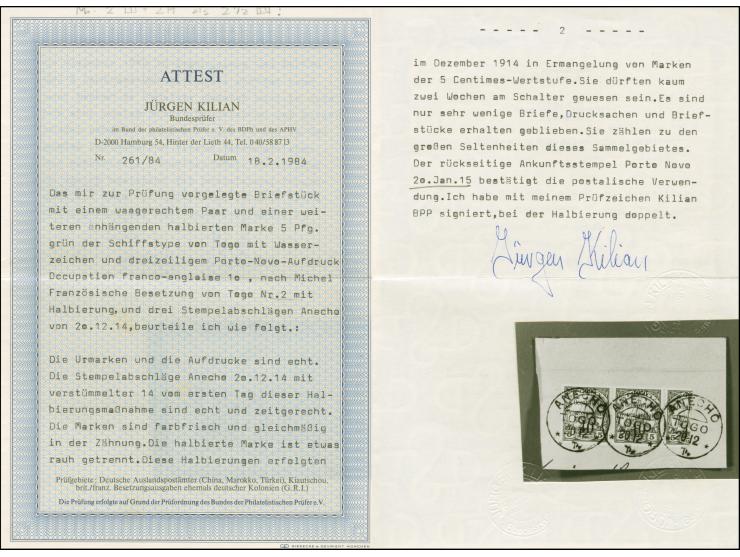 ATTEST
JÜRGEN KILIAN
Bundesprüfer
im Bund der philatelistischen Prüfer e. V. des BDPh und des APHV
D-2000 Hamburg 54, Hinter der Lieth 44, Tel. 040/58 87 13
Nr. 261/84 Datum 18.2.1984
Das mir zur Prüfung vorgelegte Briefstück
mit einem waagerechtem Paar und einer wei-
teren anhängenden halbierten Marke 5 Pfg.
grün der Schiffstype von Togo mit Wasser-
zeichen und dreizeiligem Porto-Novo-Aufdruck
Occupation franco-anglaise 1o , nach Michel
Französische Besetzung von Togo Nr.2 mit
Halbierung,und drei Stempelabschlägen Anecho
von 2o.12.14,beurteile ich wie folgt.:
Die Urmarken und die Aufdrucke sind echt.
Die Stempelabschläge Anecho 2o.12.14 mit
verstümmelter 14 vom ersten Tag dieser Hal-
bierungsmaßnahme sind echt und zeitgerecht.
Die Marken sind farbfrisch und gleichmäßig
in der Zähnung.Die halbierte Marke ist etwas
rauh getrennt.Diese Halbierungen erfolgten
Prüfgebiete: Deutsche Auslandspostämter (China, Marokko, Türkei), Kiautschou,
brit./franz. Besetzungsausgaben ehemals deutscher Kolonien (G.R.I.)
Die Prüfung erfolgte auf Grund der Prüfordnung des Bundes der Philatelistischen Prüfer e.V.
GIESECKE & DEVRIENT MÜNCHEN
- - - - - 2 - - - - -
im Dezember 1914 in Ermangelung von Marken
der 5 Centimes-Wertstufe.Sie dürften kaum
zwei Wochen am Schalter gewesen sein.Es sind
nur sehr wenige Briefe,Drucksachen und Brief-
stücke erhalten geblieben.Sie zählen zu den
großen Seltenheiten dieses Sammelgebietes.
Der rückseitige Ankunftsstempel Porto Novo
2o.Jan.15 bestätigt die postalische Verwen-
dung.Ich habe mit meinem Prüfzeichen Kilian
BPP signiert,bei der Halbierung doppelt.
Jürgen Kilian
ANECHO ANECHO ANECHO
TOGO TOGO TOGO